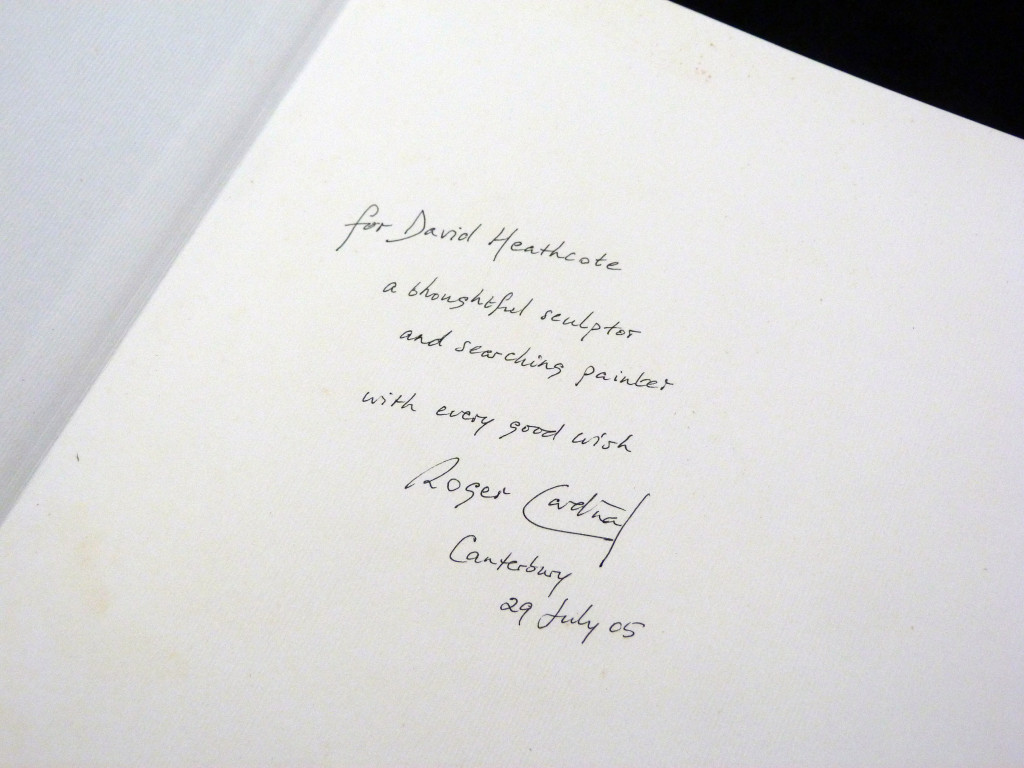 for David Heathcote
a thoughtful sculptor
and searching painter
with every good wish
Roger Cardinal
Canterbury
29 July 05